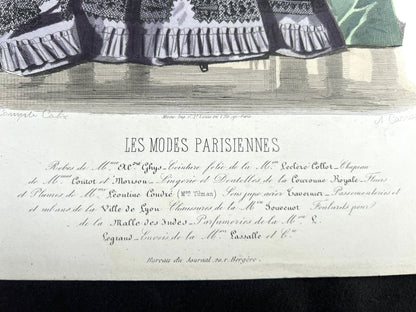 Moine, Imp. r. St Louis
LES MODES PARISIENNES
Robes de Mme Alde Ghys - Ceinture folie de la Mon Leclerc Collot - Chapeau
de Mmes Coutot et Morison - Lingerie et Dentelles de la Couronne Royale - Fleurs
et Plumes de Mme Léontine Coudré (Mon Tilman) Sous jupe acier Tavernier - Passementeries et
et rubans de la Ville de Lyon Chaussures de la Mon Jouvenot Foulards pour
de la Malle des Indes - Parfumeries de la Mon L.
Legrand - Envois de la Mon Lassalle et Cie
Bureau du Journal 20, r. Bergère.